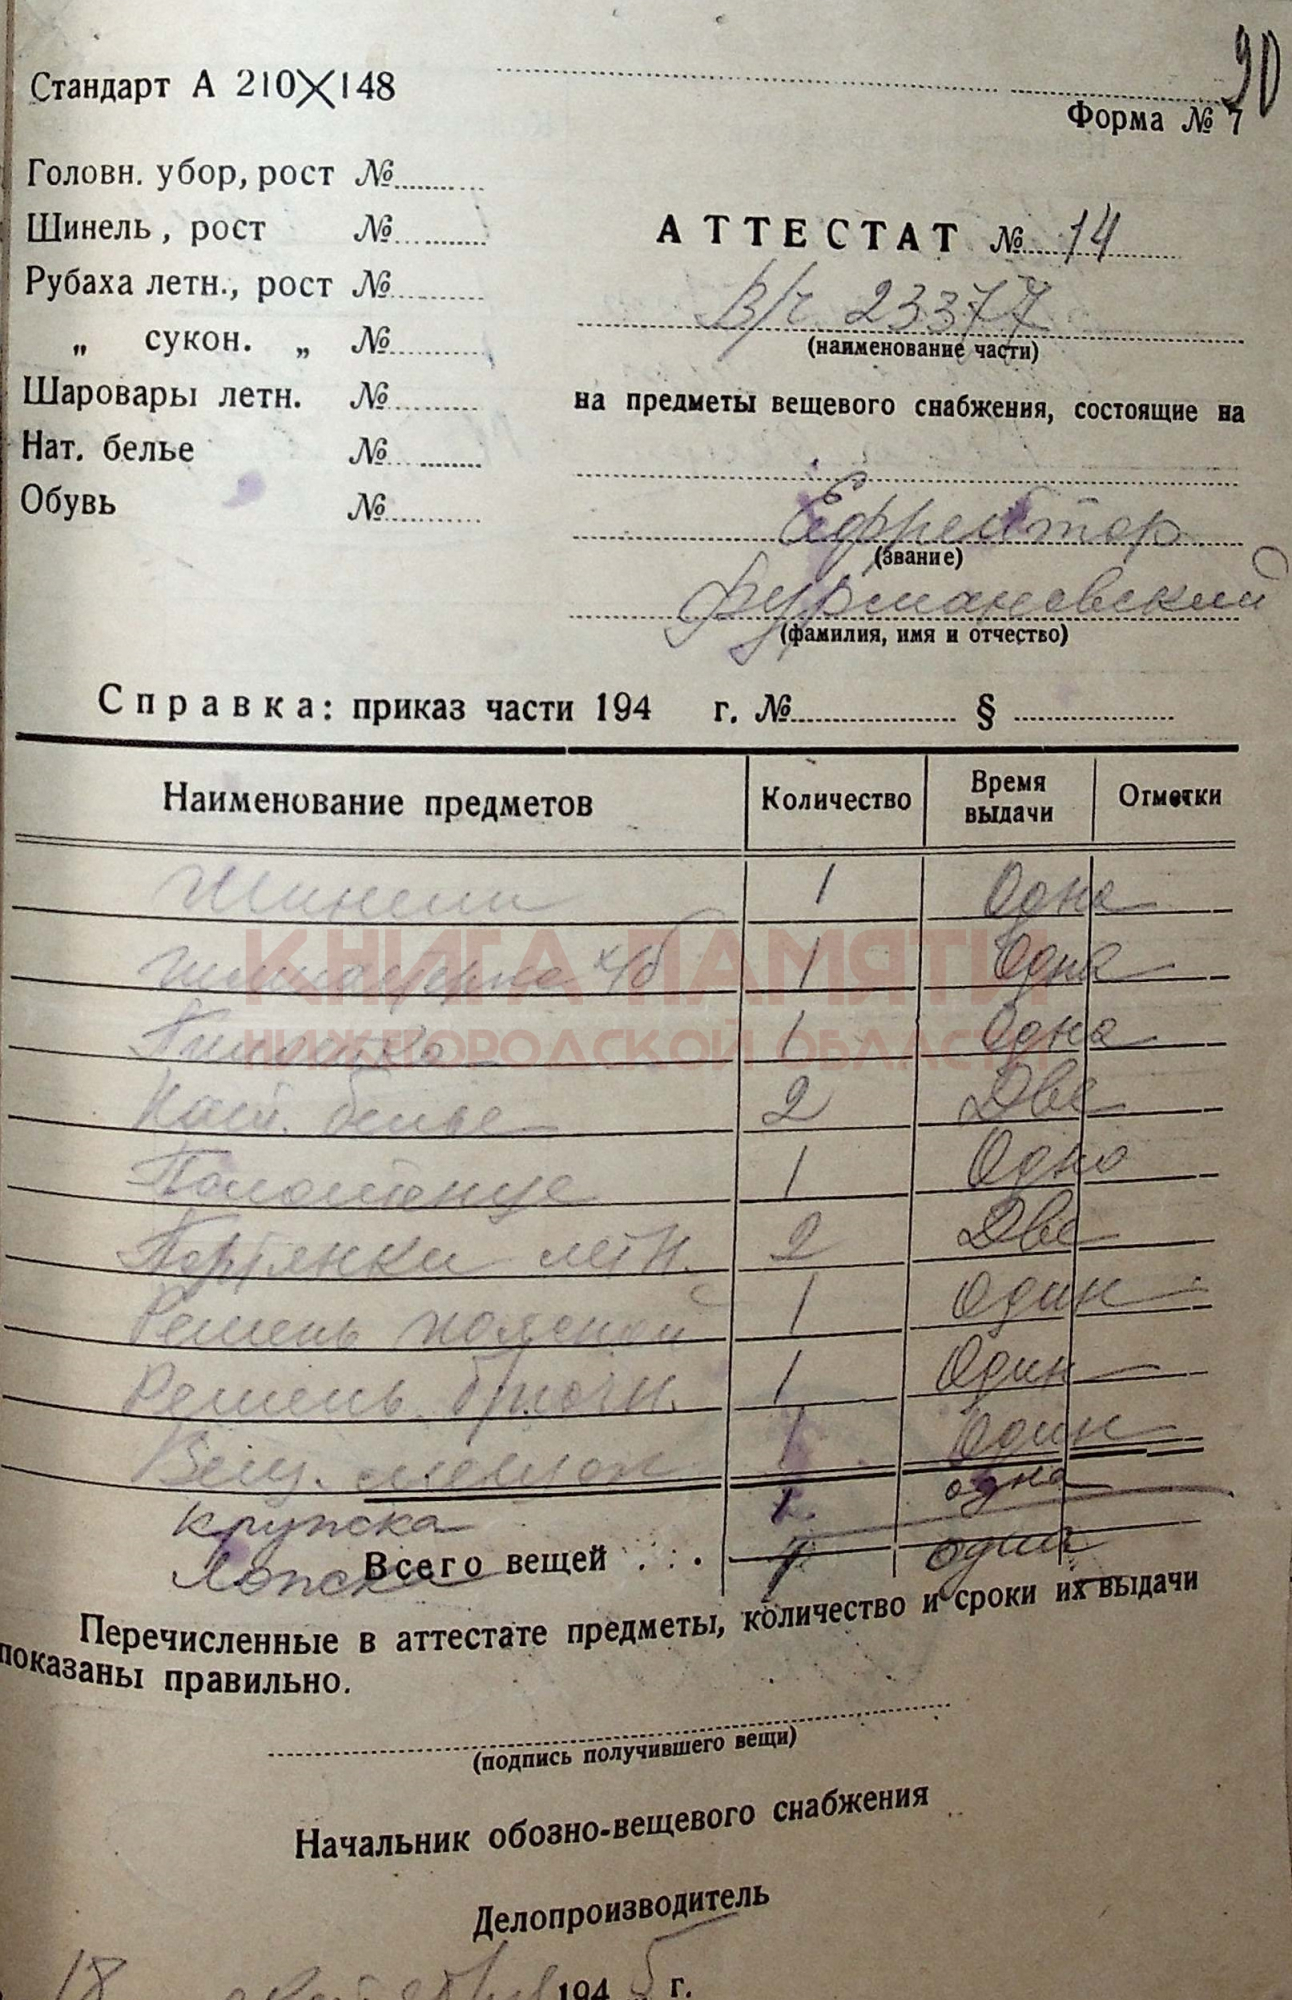 90
Стандарт А 210×148
Форма № 7
Головн. убор, рост №
Шинель, рост №
Рубаха летн., рост №
„ сукон. „ №
Шаровары летн. №
Нат. белье №
Обувь №
АТТЕСТАТ № 14
В/ч 23377
(наименование части)
на предметы вещевого снабжения, состоящие на
Ефрейтор
(звание)
Фурмановский
(фамилия, имя и отчество)
Справка: приказ части 194 г. № §
Наименование предметов Количество Время выдачи Отметки
Шинели 1 Одна
х/б 1 Одна
Пилотка 1 Одна
Нат. белье 2 Две
Полотенце 1 Одно
Портянки летн. 2 Две
Ремень поясной 1 Один
Ремень брючн. 1 Один
Вещ. мешок 1 Один
кружска 1 одна
Всего вещей . . . 1 один
Перечисленные в аттестате предметы, количество и сроки их выдачи
показаны правильно.
(подпись получившего вещи)
Начальник обозно-вещевого снабжения
Делопроизводитель
18 1945 г.
КНИГА ПАМЯТИ
НИЖЕГОРОДСКОЙ ОБЛАСТИ